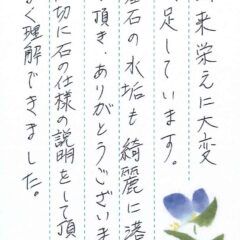 来栄えに大変
足しています。
石の水垢も綺麗に落
頂き、ありがとうございま
切に石の仕様の説明をして頂
く理解できました。